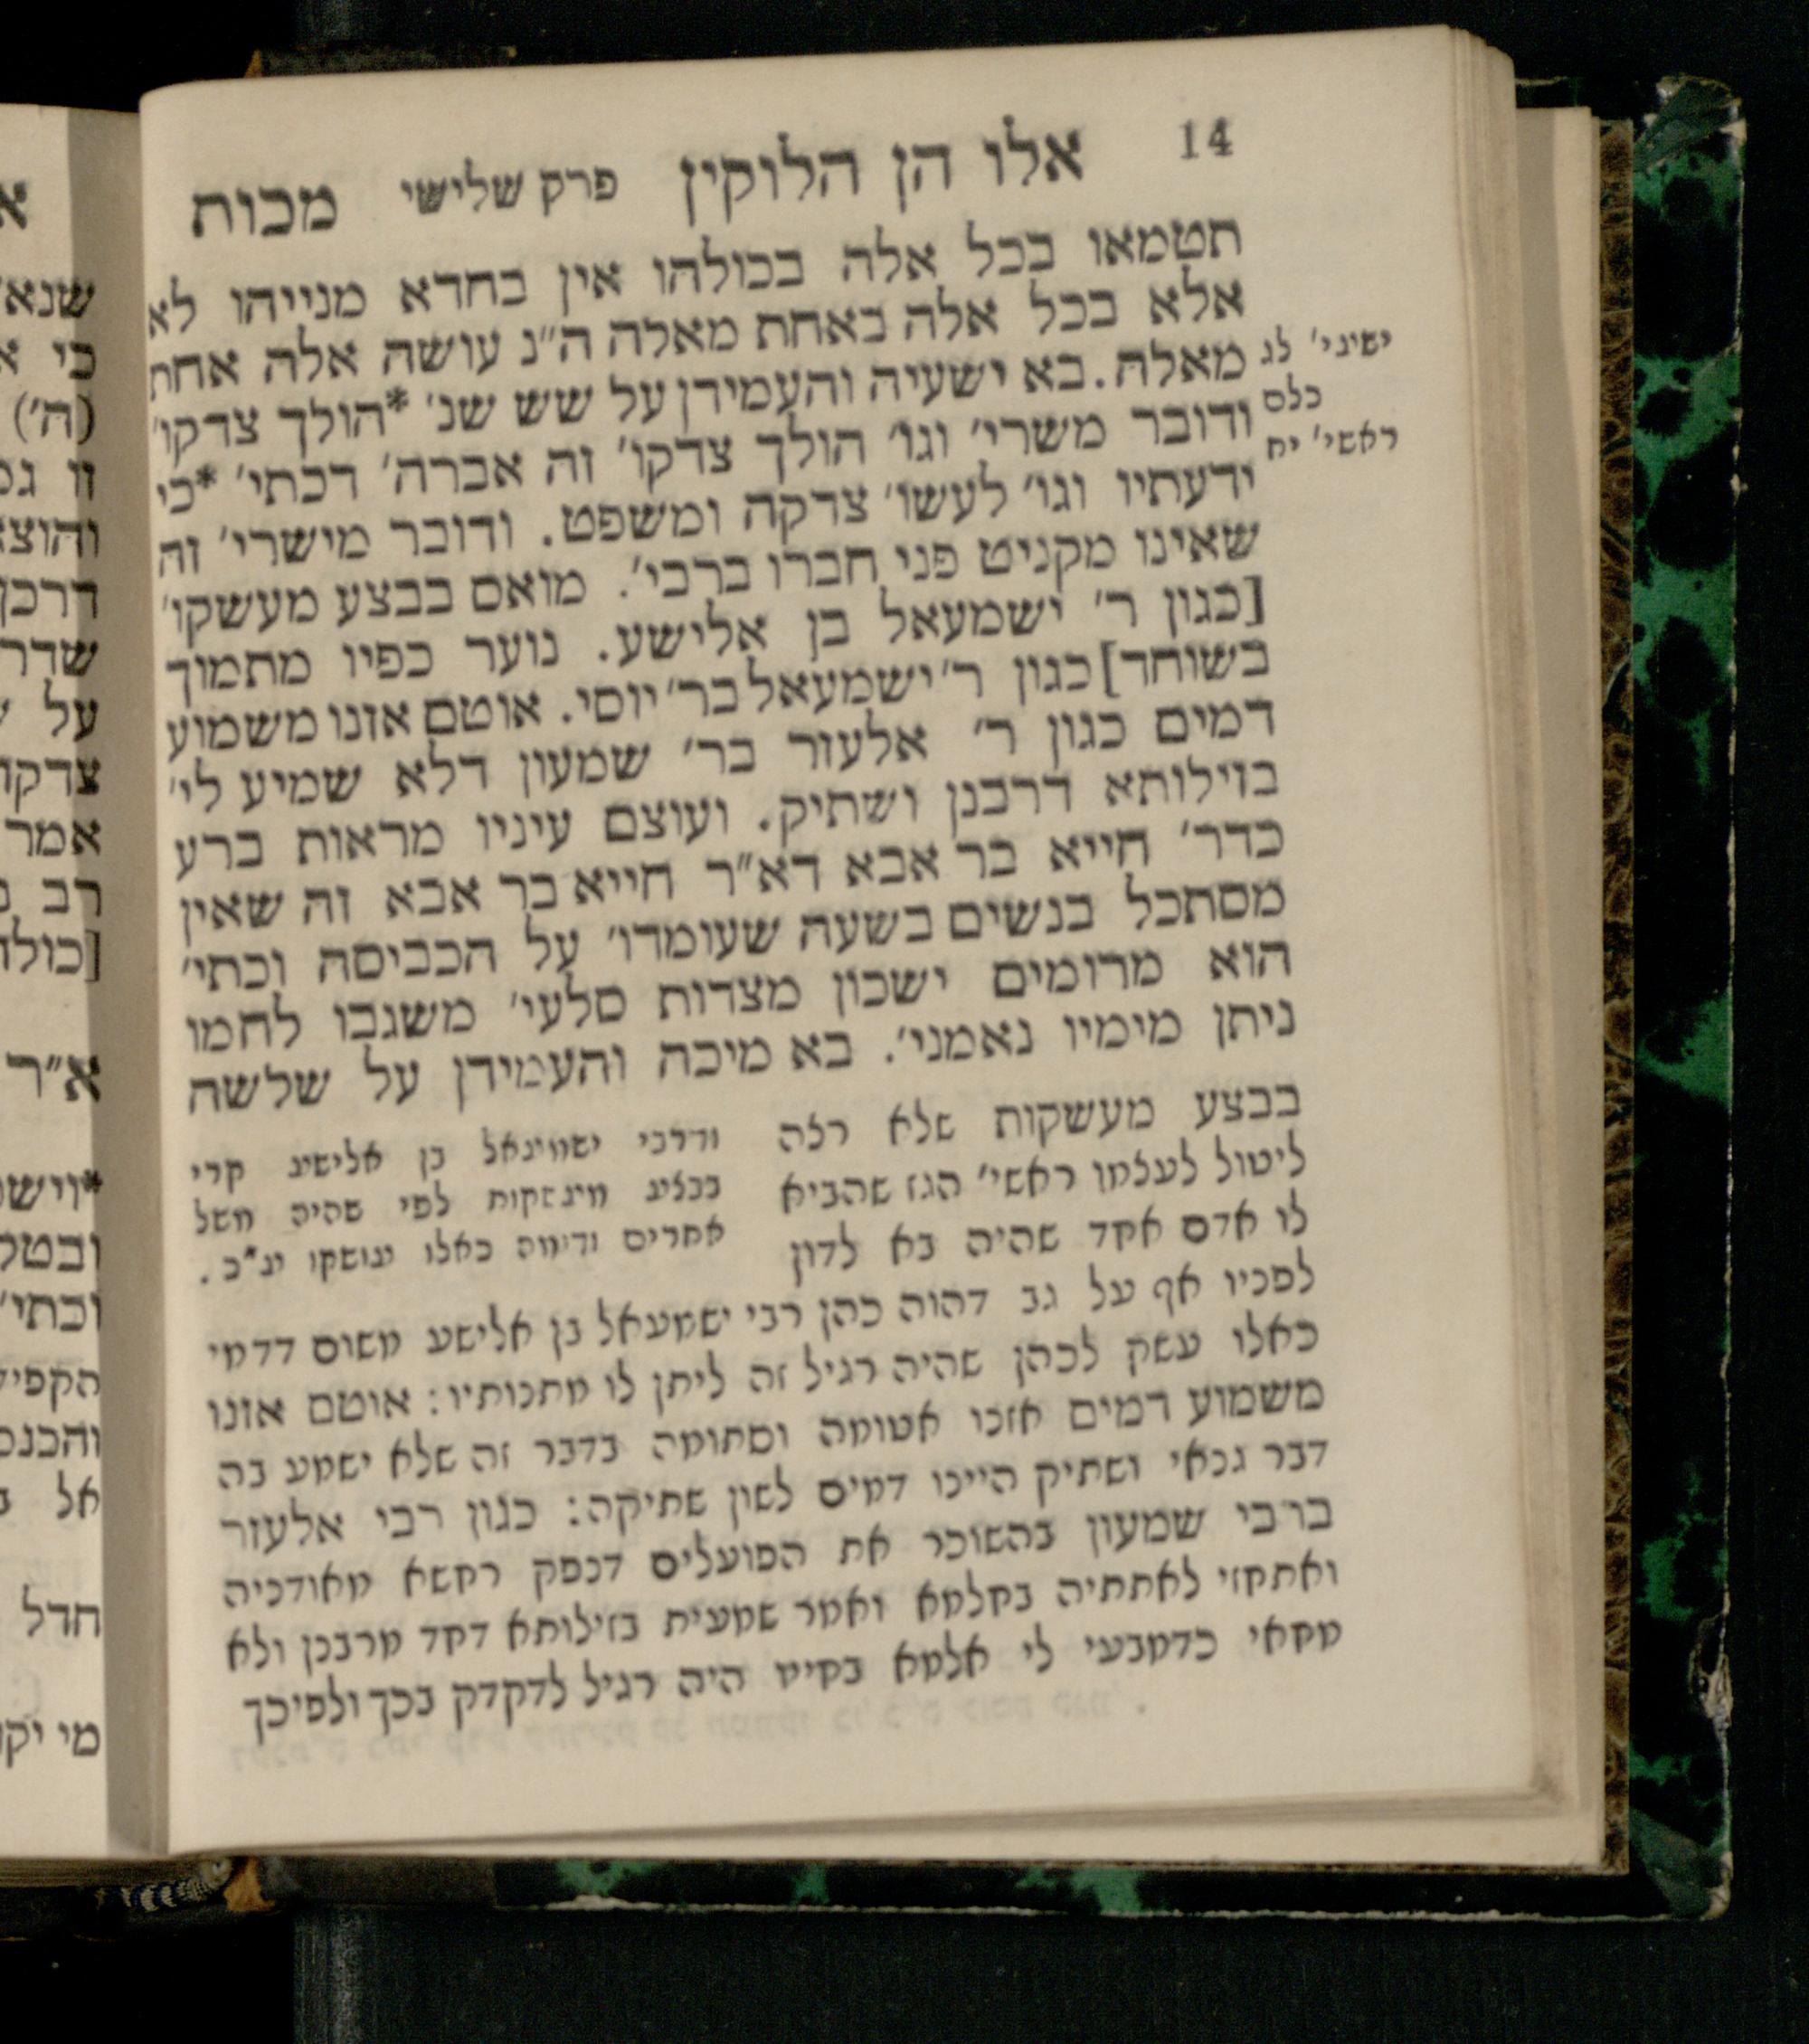 14 אלו הן הלוקין פרק שלישי מכות
תטמאו בכל אלה בכולהו אין בחדא מנייהו לא
אלא בכל אלה באחת מאלה ה״נ עושה אלה אחת
מאלה. בא ישעיה והעמידן על שש שנ׳ *הולך צדקו׳
ודובר משרי׳ וגו׳ הולך צדקו׳ זה אברה׳ דכתי׳ *כי
ידעתיו וגו׳ לעשו׳ צדקה ומשפט. ודובר מישרי׳ זה
שאינו מקניט פני חברו ברבי׳. מואס בבצע מעשקו׳
[כגון ר׳ ישמעאל בן אלישע. נוער כפיו מתמוך
בשוחד] כגון ר׳ ישמעאל בר׳ יוסי. אוטם אזנו משמוע
דמים כגון ר׳ אלעזר בר׳ שמעון דלא שמיע לי׳
בזילותא דרבנן ושתיק. ועוצם עיניו מראות ברע
כדר׳ חייא בר אבא דא״ר חייא בר אבא זה שאין
מסתכל בנשים בשעה שעומדו׳ על הכביסה וכתי׳
הוא מרומים ישכון מצדות סלעי׳ משגבו לחמו
ניתן מימיו נאמני׳. בא מיכה והעמידן על שלשה
ישעי׳ לג
כלם
ראשי׳ יח
בבצע מעשקות שלא רצה
ליטול לעצמו ראשי׳ הגז שהביא
לו אדם אחד שהיה בא לדון
ודרבי ישמעאל בן אלישע קרי
בבצע מעשקות לפי שהיה משל
אחרים ודימה כאלו עושקו ע״כ.
לפניו אף על גב דהוה כהן רבי ישמעאל בן אלישע משום דדמי
כאלו עשק לכהן שהיה רגיל זה ליתן לו מתנותיו: אוטם אזנו
משמוע דמים אזנו אטומה וסתומה בדבר זה שלא ישמע בה
דבר גנאי ושתיק היינו דמים לשון שתיקה: כגון רבי אלעזר
ברבי שמעון בהשוכר את הפועלים דנפק רחשא מאודניה
ואתחזי לאתתיה בחלמא ואמר שמעית בזילותא דחד מרבנן ולא
מחאי כדמבעי לי אלמא בחייו היה רגיל לדקדק בכך ולפיכך